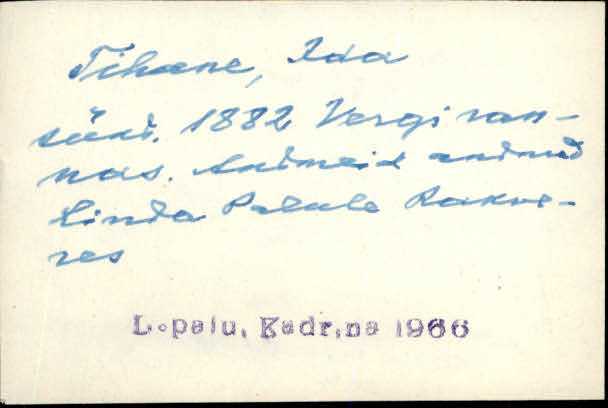 Tihane, Ida
sünd. 1882 Vergi ran-
nas. Andmeid andnud
Linda Palule Rakve-
res
L. palu, Kadrina 1966